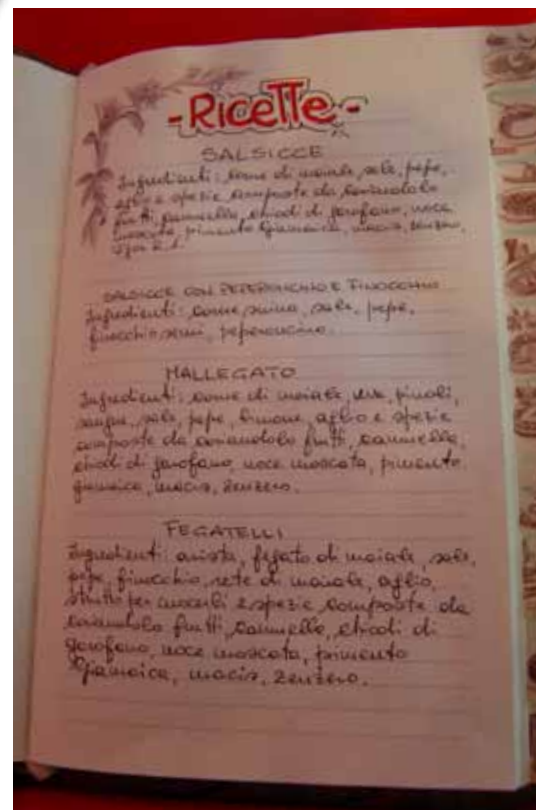 -Ricette-
SALSICCE
Ingredienti: carne di maiale, sale, pepe,
aglio e spezie composte da coriandolo
frutti, cannella, chiodi di garofano, noce
moscata, pimento Giamaica, macis, zenzero,
SALSICCE CON PEPERONCINO E FINOCCHIO
Ingredienti: carne suina, sale, pepe,
finocchio semi, peperoncino.
MALLEGATO
Ingredienti: carne di maiale, uva, pinoli,
sangue, sale, pepe, limone, aglio e spezie
composte da coriandolo frutti, cannella,
chiodi di garofano, noce moscata, pimento
giamaica, macis, zenzero.
FEGATELLI
Ingredienti: arista, fegato di maiale, sale,
pepe, finocchio, rete di maiale, aglio,
strutto per cuocerli e spezie composte da
coriandolo frutti, cannella, chiodi di
garofano, noce moscata, pimento
Giamaica, macis, zenzero.